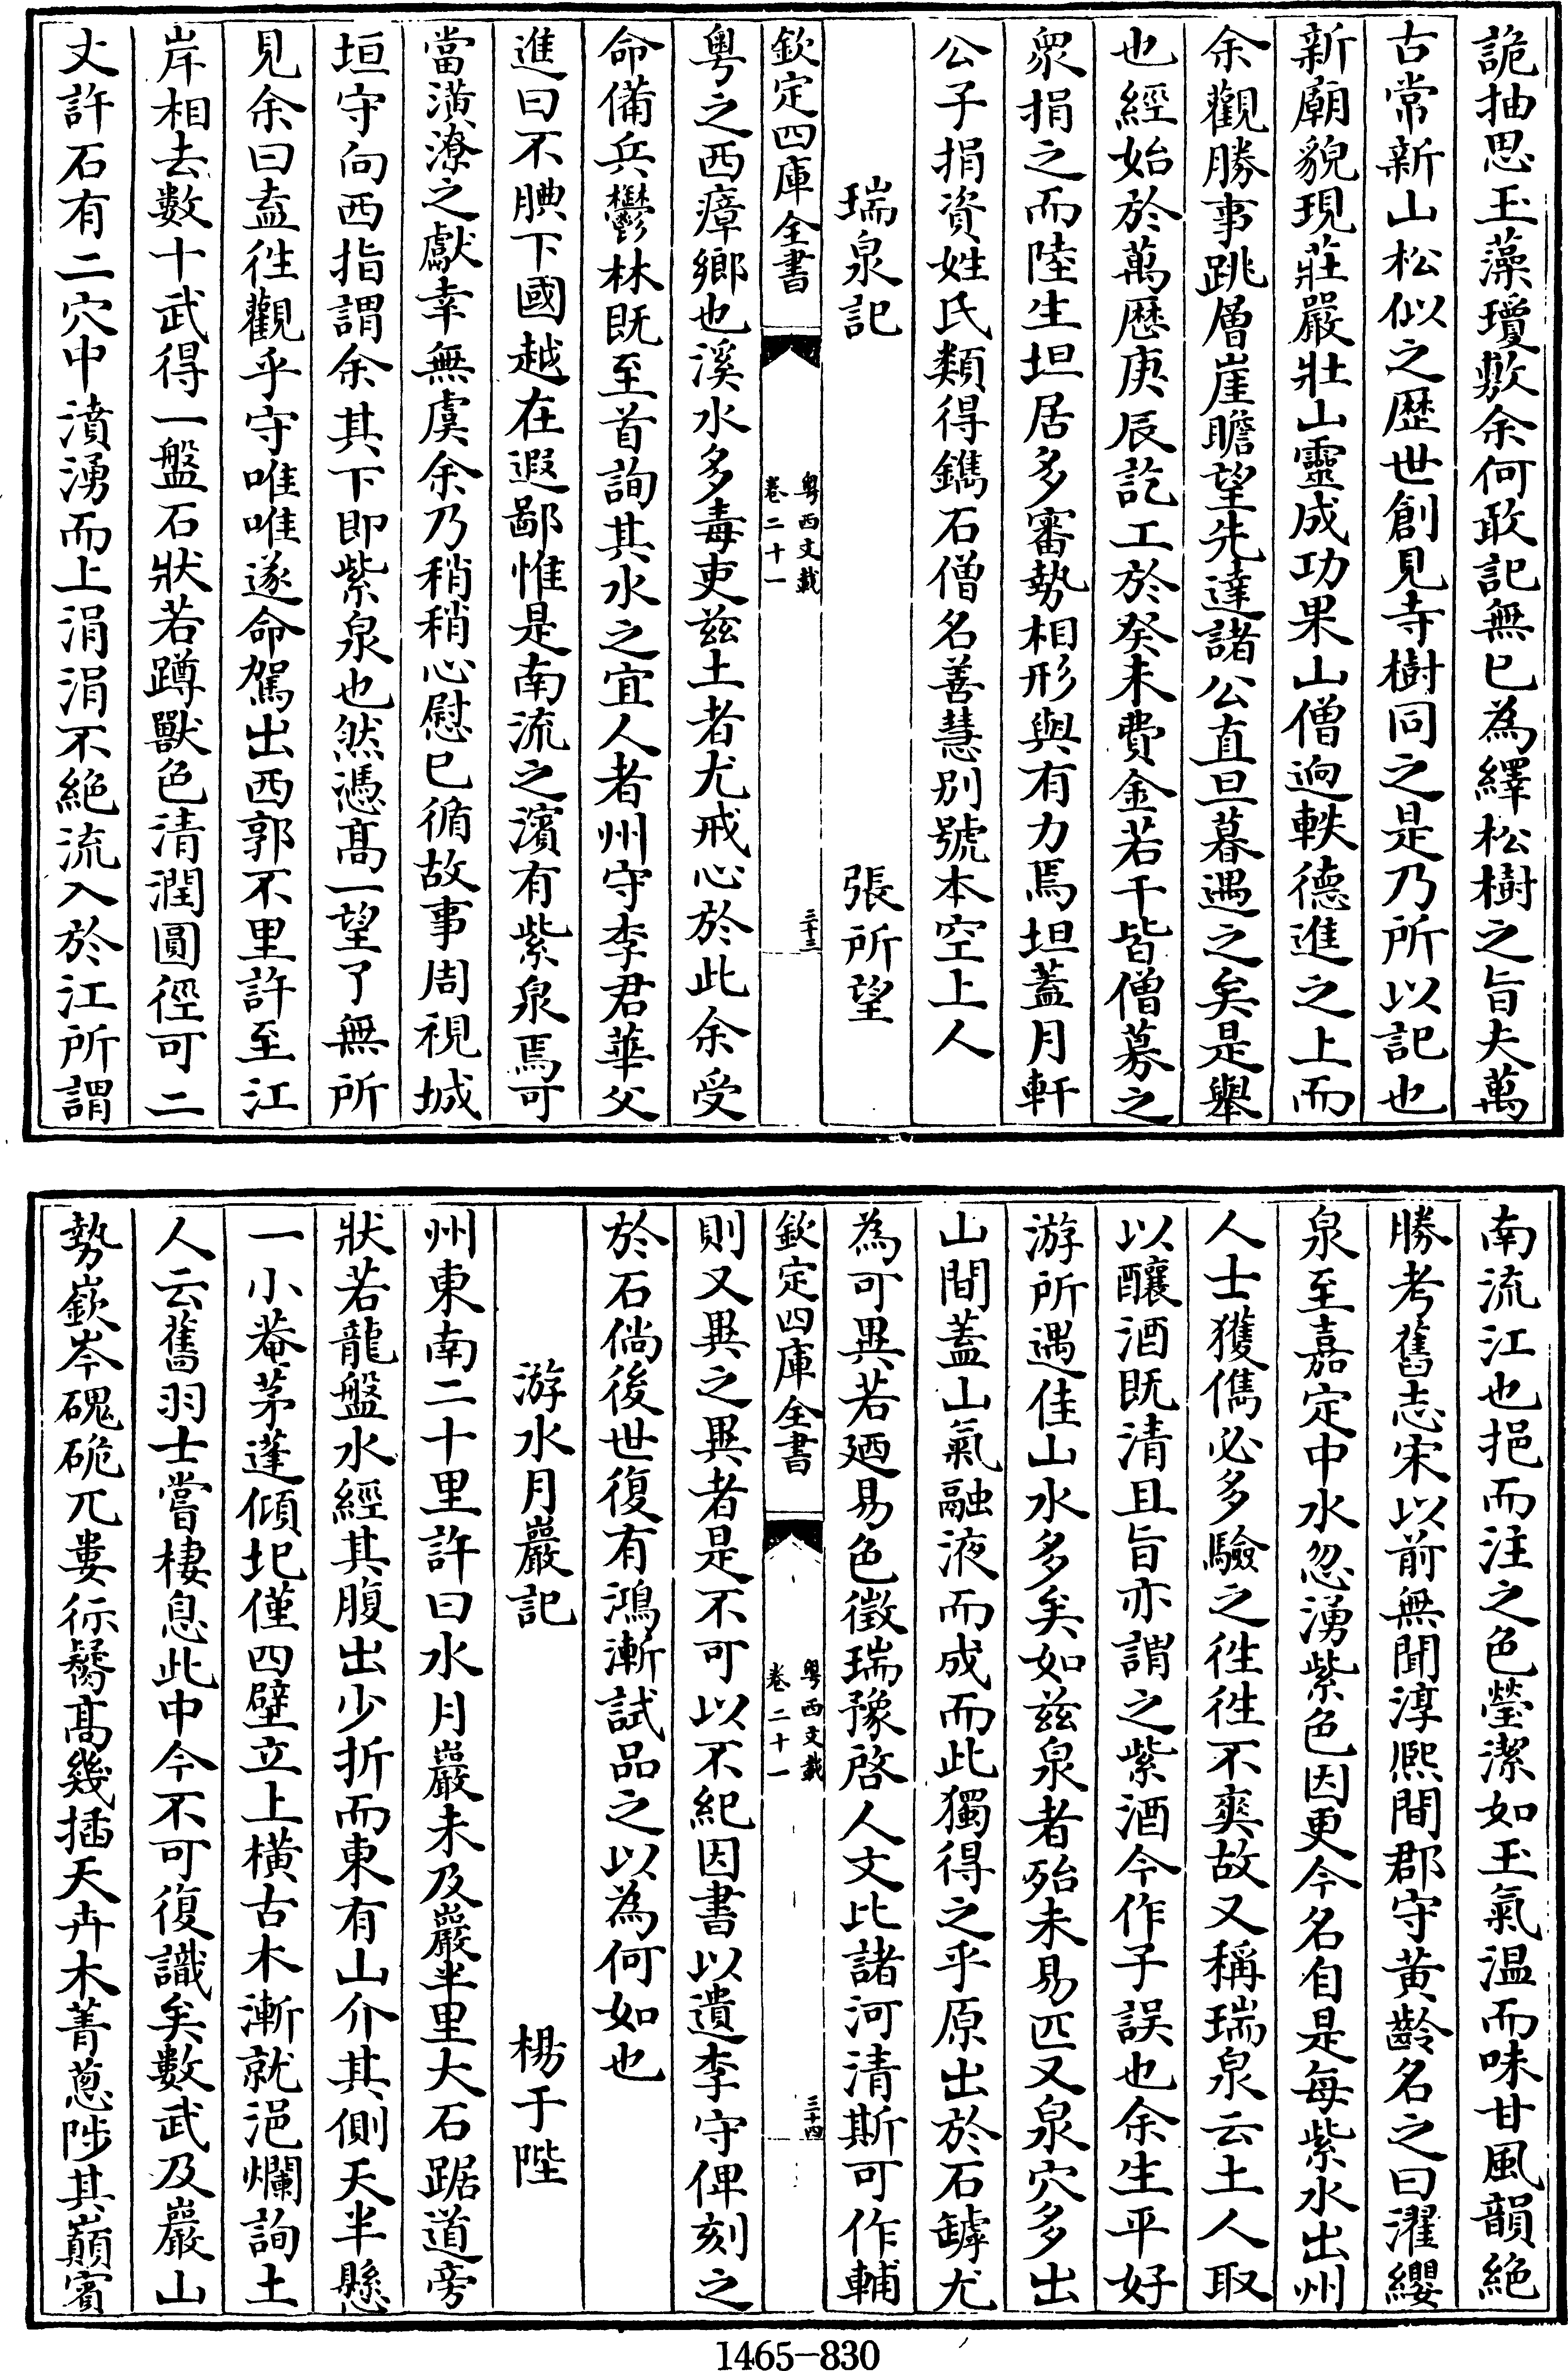 詭抽思玉藻瓊敷余何敢記無已為繹松樹之旨夫萬
古常新山松似之歴世創見寺樹同之是乃所以記也
新廟貌現莊嚴壯山靈成功果山僧逈軼德進之上而
余觀勝事跳層崖瞻望先達諸公直旦暮遇之矣是舉
也經始於萬歴庚辰訖工於癸未費金若干皆僧募之
衆捐之而陸生坦居多審勢相形與有力焉坦蓋月軒
公子捐資姓氏類得鐫石僧名善慧别號本空上人
瑞泉記　張所望
欽定四庫全書　粤西文載卷二十一　三十三
粤之西瘴鄉也溪水多毒吏兹土者尤戒心於此余受
命備兵鬱林既至首詢其水之宜人者州守李君華父
進曰不腆下國越在遐鄙惟是南流之濱有紫泉焉可
當潢潦之獻幸無虞余乃稍稍心慰已循故事周視城
垣守向西指謂余其下即紫泉也然憑髙一望了無所
見余曰盍徃觀乎守唯唯遂命駕出西郭不里許至江
岸相去數十武得一盤石狀若蹲獸色清潤圓徑可二
丈許石有二穴中濆湧而上涓涓不絶流入於江所謂
南流江也挹而注之色瑩潔如玉氣温而味甘風韻絶
勝考舊志宋以前無聞淳熈間郡守黄齡名之曰濯纓
泉至嘉定中水忽湧紫色因更今名自是每紫水出州
人士獲儁必多驗之徃徃不爽故又稱瑞泉云土人取
以釀酒既清且旨亦謂之紫酒今作子誤也余生平好
游所遇佳山水多矣如兹泉者殆未易匹又泉穴多出
山間蓋山氣融液而成而此獨得之乎原出於石罅尤
為可異若廼易色徵瑞豫啓人文比諸河清斯可作輔
欽定四庫全書　粤西文載卷二十一　三十四
則又異之異者是不可以不紀因書以遺李守俾刻之
於石倘後世復有鴻漸試品之以為何如也
游水月巖記　楊于陛
州東南二十里許曰水月巖未及巖半里大石踞道旁
狀若龍盤水經其腹出少折而東有山介其側天半懸
一小菴茅蓬傾圯僅四壁立上横古木漸就浥爛詢土
人云舊羽士嘗棲息此中今不可復識矣數武及巖山
勢嶔岑磈硊兀婁沶鬵髙幾插天卉木菁蔥陟其巔賓
1465-830